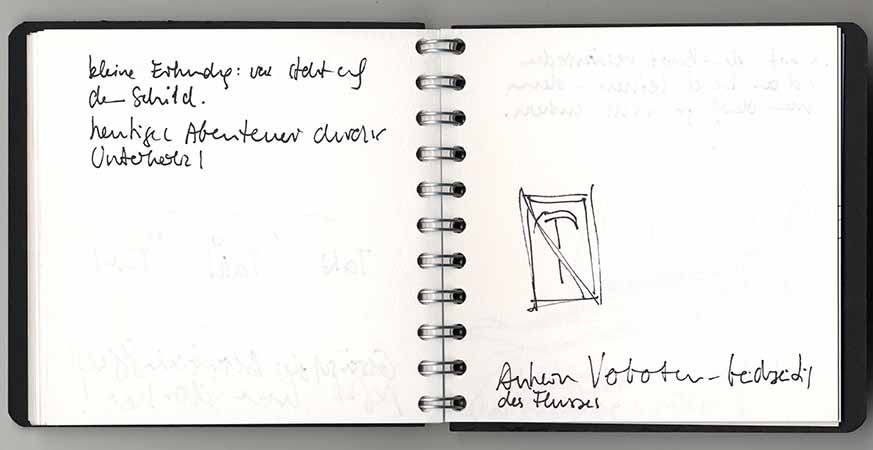 kleine Erkundung: was steht auf
dem Schild.
heutiges Abenteuer durchs
Unterholz!
Ankern Verboten – beidseitig
des Flusses